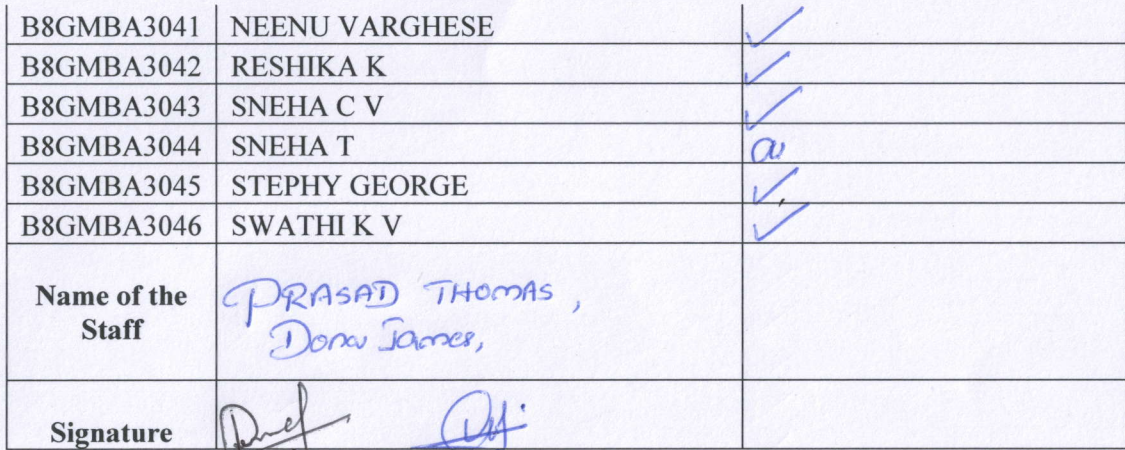 B8GMBA3041 NEENU VARGHESE ✓
B8GMBA3042 RESHIKA K ✓
B8GMBA3043 SNEHA C V ✓
B8GMBA3044 SNEHA T
B8GMBA3045 STEPHY GEORGE ✓
B8GMBA3046 SWATHI K V ✓
Name of the Staff PRASAD THOMAS,
Dona James,
Signature